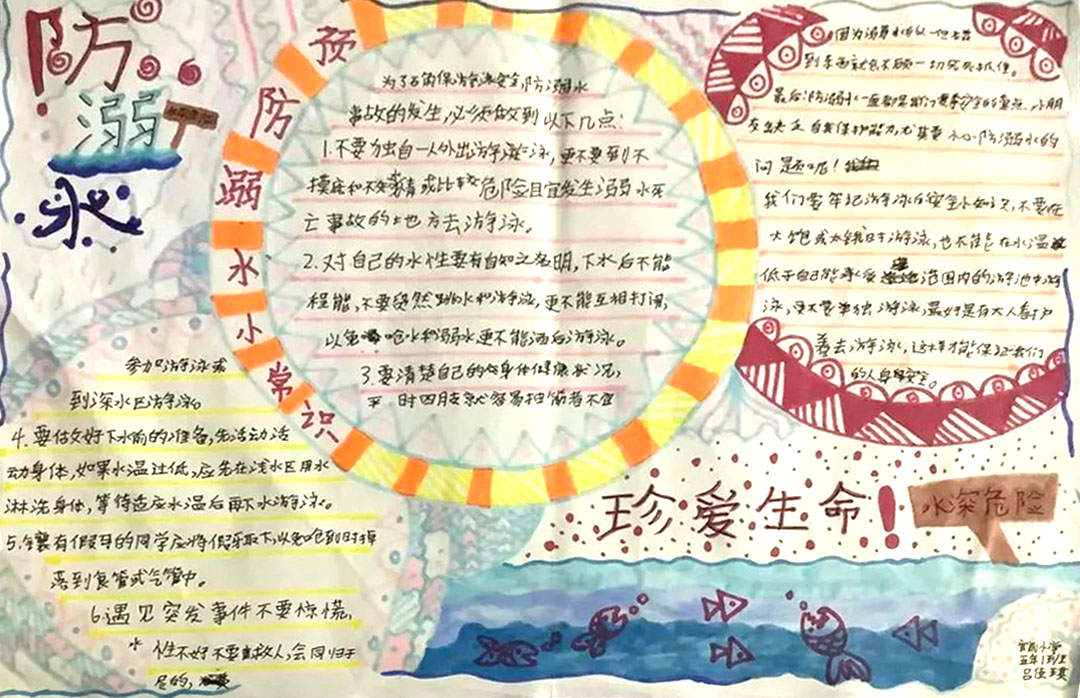 防
溺
水
预防溺水小常识
为了确保游泳安全,防溺水
事故的发生,必须做到以下几点:
1.不要独自一人外出游泳,更不要到不
摸底和不知情或比较危险且宜发生溺水死
亡事故的地方去游泳。
2.对自己的水性要有自知之明,下水后不能
逞能,不要突然跳水和游泳,更不能互相打闹,
以免呛水和溺水更不能酒后游泳。
3.要清楚自己的身体健康状况,
平时四肢就容易抽筋者不宜
参加游泳或
到深水区游泳。
4.要做好下水前的准备,先活动活
动身体,如果水温过低,应先在浅水区用水
淋洗身体,等待适应水温后再下水游泳。
5.镶有假牙的同学应将假牙取下,以免呛到时掉
落到食管或气管中。
6.遇见突发事件不要惊慌,
*性不好不要救人,会同归于
尽的,
因为溺水的人一但
到东西就会不顾一切死死抓住。
最后,防溺水一直都是我们要安全的重点,小朋
友缺乏自我保护能力,尤其要小心防溺水的
问题呢!
我们要牢记游泳的安全小知识,不要在
大饱或太饿时游泳,也不能在水温
低于自己能承受范围内的游池中游
泳,更不要单独游泳,最好是有大人看护
着去游泳,这样才能保证我们
的人身安全。
珍爱生命!
水深危险
小学
五年1班
吕佳琪